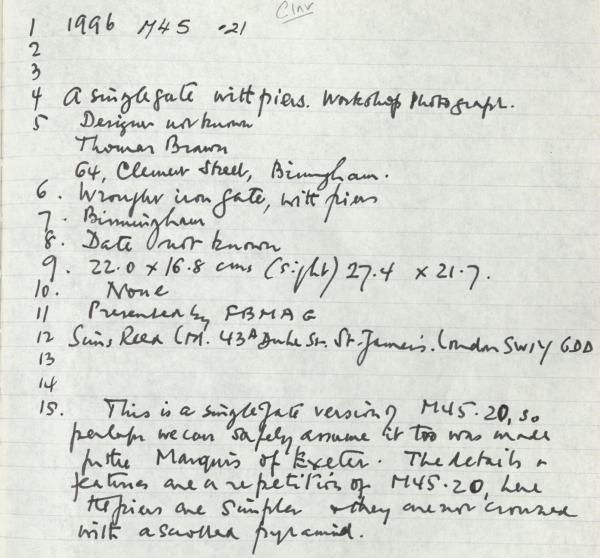 1 1996 M45 .21
2
3
4 A single gate with piers. Workshop Photograph.
5 Designer not known
Thomas Brawn
64, Clement Street, Birmingham.
6. Wrought iron gate, with piers
7. Birmingham
8. Date not known
9. 22.0 x 16.8 cms (sight) 27.4 x 21.7.
10. None
11 Presented by FBMAG
12 Sims Reed Ltd. 43A Duke St. St. James's. London SW1Y 6DD
13
14
15. This is a single gate version of M45.20, so
perhaps we can safely assume it too was made
for the Marquis of Exeter. The details &
features are a repetition of M45.20, here
the piers are simpler & they are not crowned
with a scrolled pyramid.